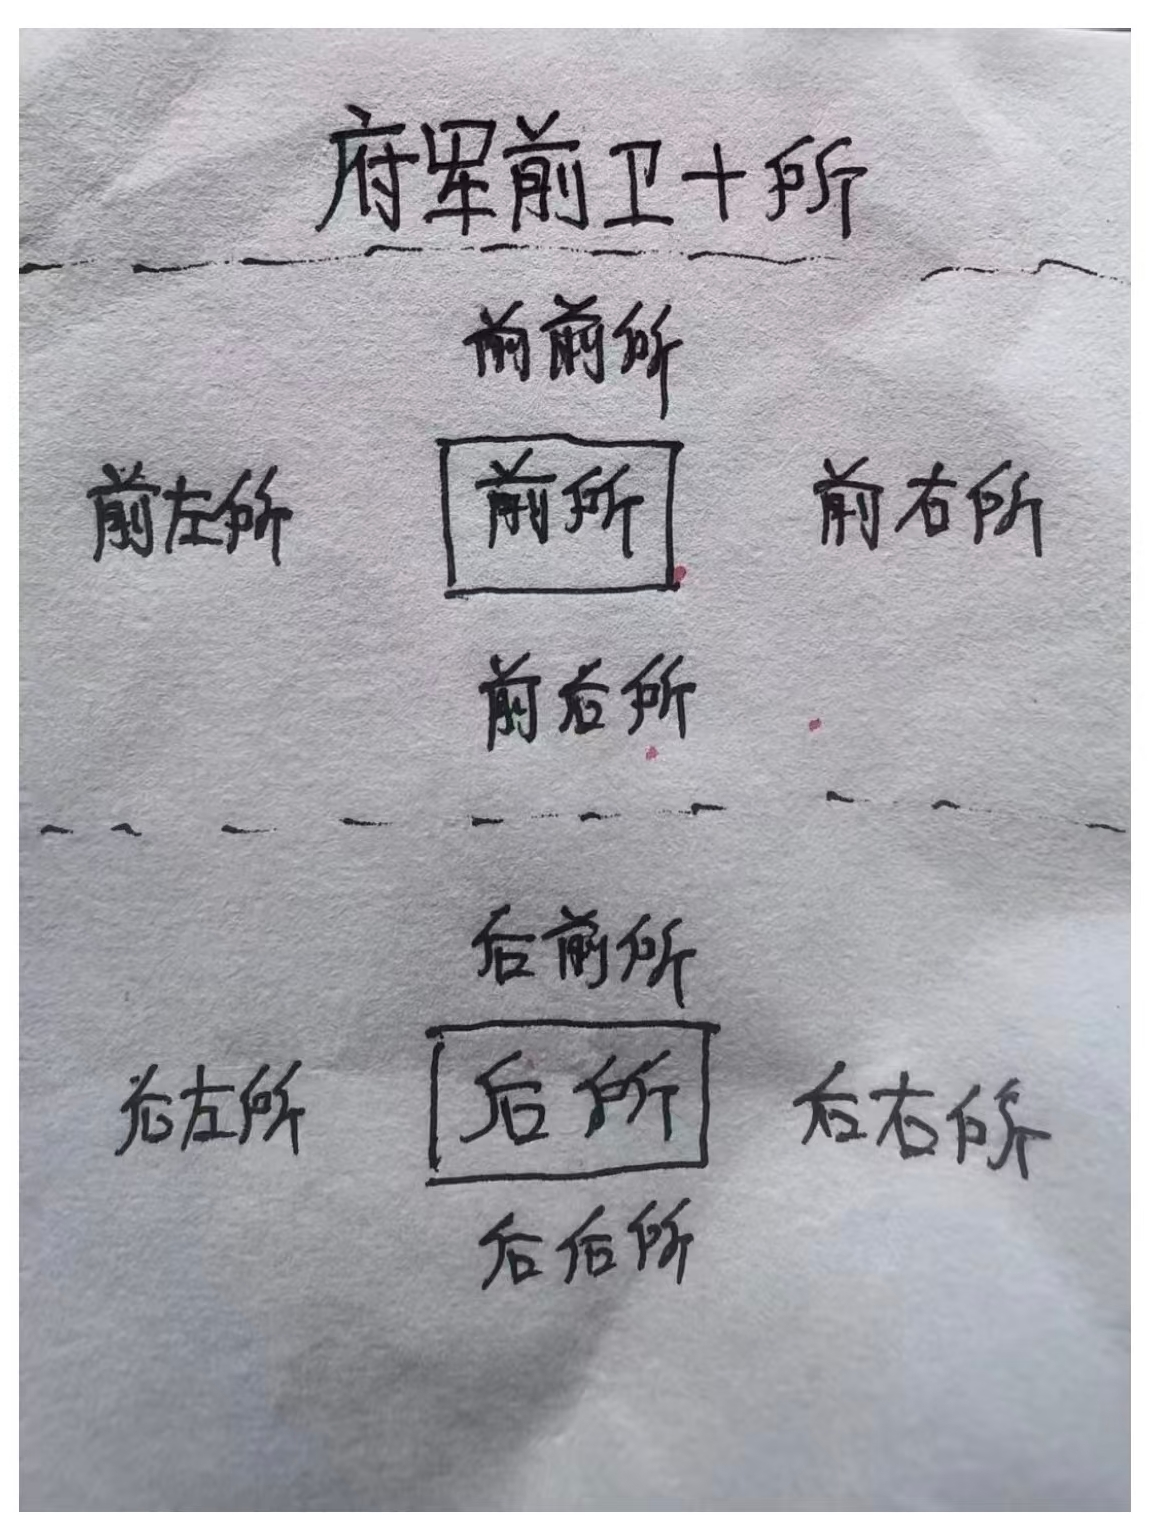 府军前卫十所
前前所
前左所 前所 前右所
前后所
后前所
后左所 后所 后右所
后后所